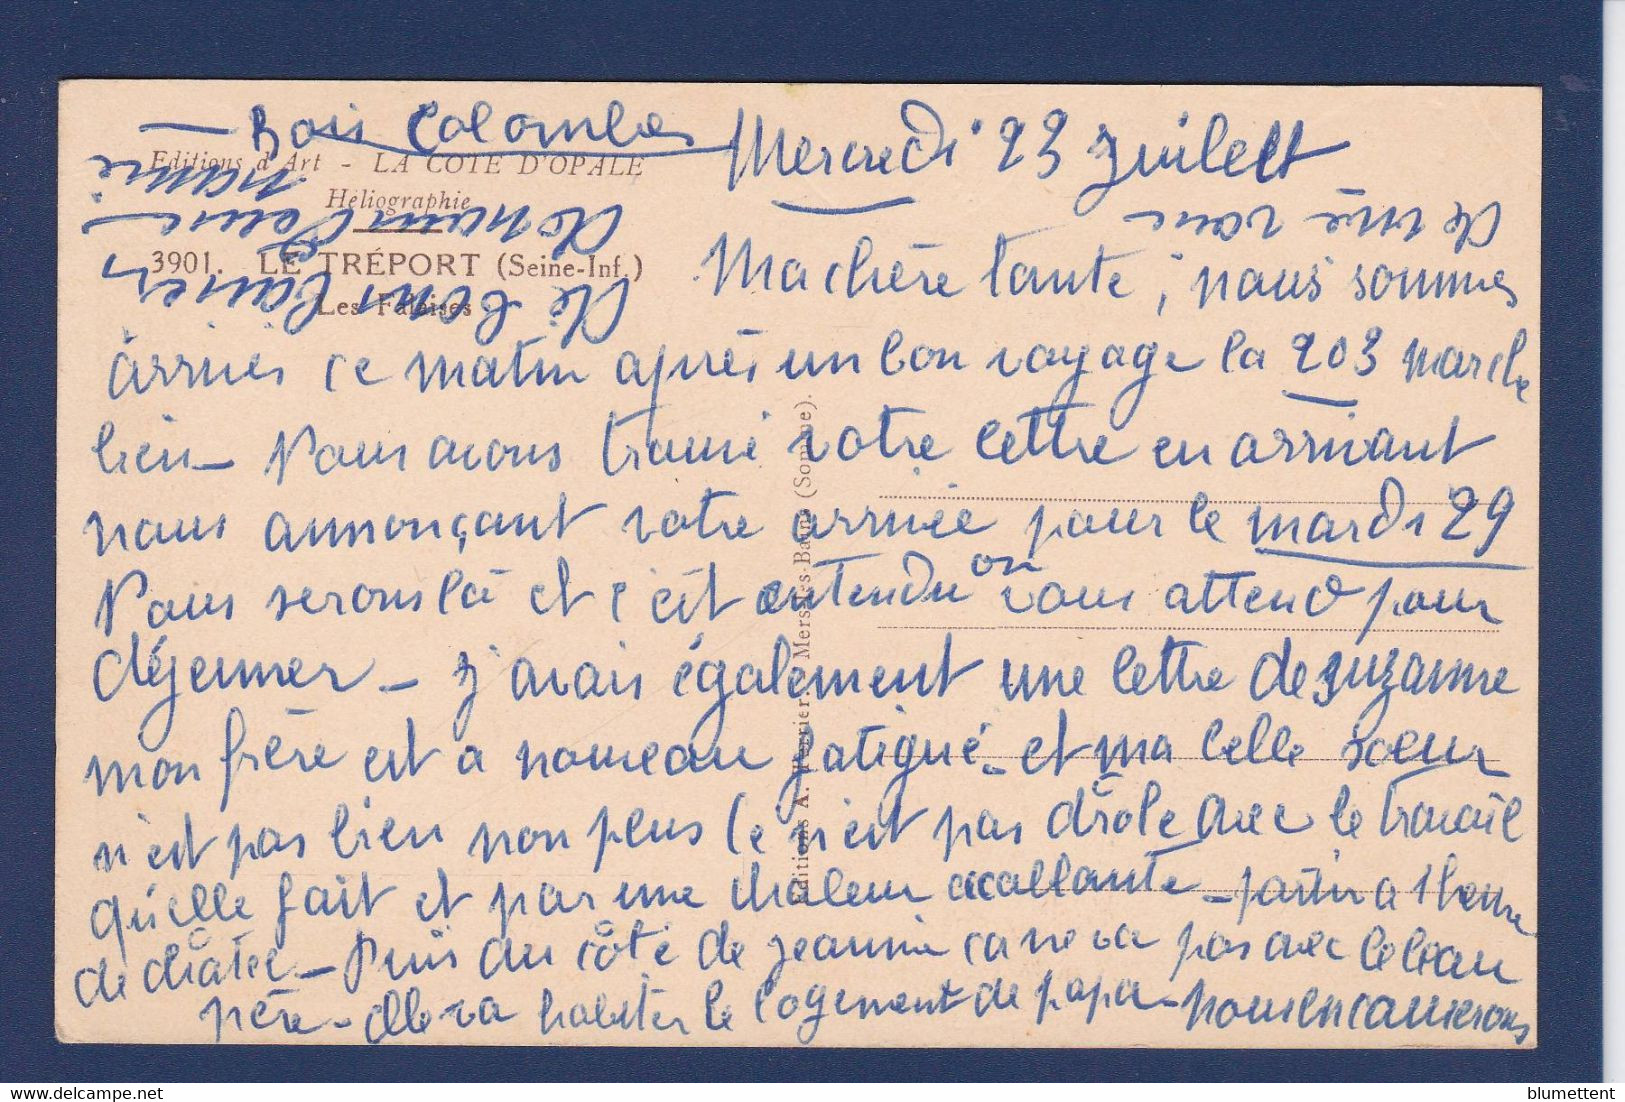 Bois Colombes
Mercredi 23 Juillet
Editions d'Art - LA COTE D'OPALE
Héliographie
3901. LE TRÉPORT (Seine-Inf.)
Les Falaises
Ma chère tante, nous sommes
arrivés ce matin après un bon voyage la 203 marche
bien - Nous avons trouvé votre lettre en arrivant
nous annonçant votre arrivée pour le mardi 29
Nous serons là et c'est entendu on vous attend pour
déjeuner - J'avais également une lettre de Suzanne
mon frère est a nouveau fatigué - et ma belle soeur
n'est pas bien non plus Ce n'est pas drôle avec le travail
qu'elle fait et par une chaleur accablante - partir a 1 heure
de - Puis du côté de Jeannine ca ne va pas avec le beau
père - elle va habiter le logement de papa - nous en causerons
de vive voix
bons baisers
Editions A. Mers-les-Bains (Somme).
blumettent